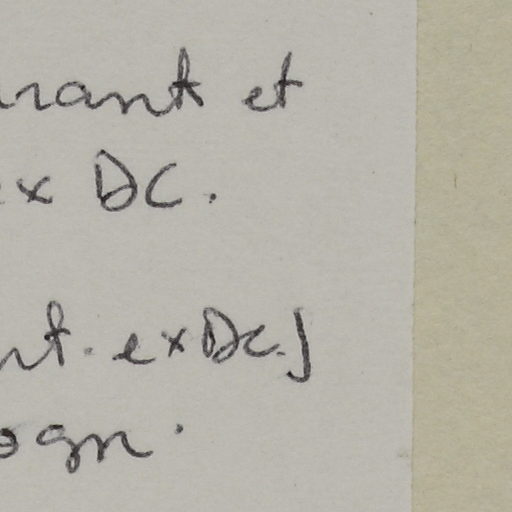 urant et
ex DC.
nt. ex DC.]
ogn.